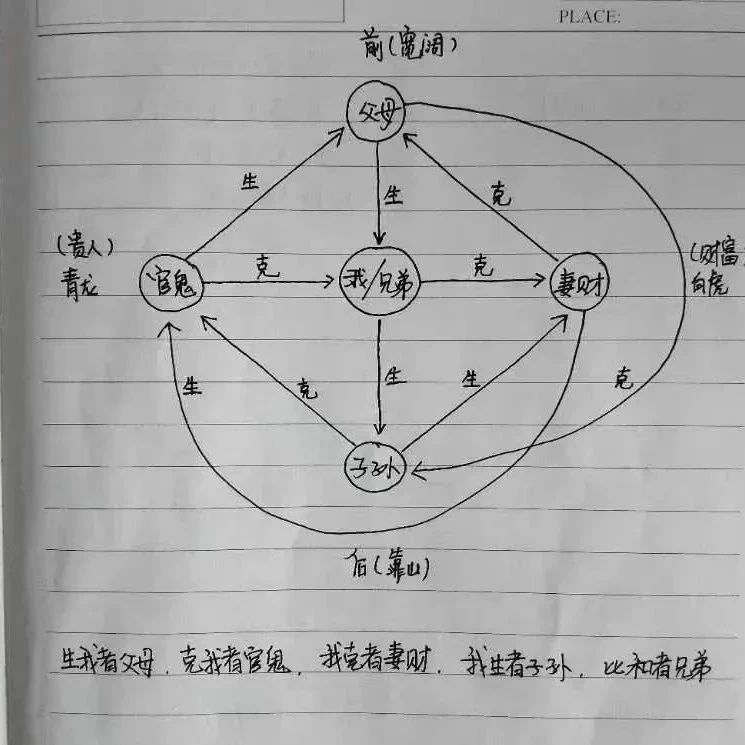 PLACE:
前(宽阔)
父母
生
生
克
(贵人)
青龙
官鬼
克
我/兄弟
克
妻财
(财富
白虎
生
克
生
生
克
子孙
后(靠山)
生我者父母,克我者官鬼,我克者妻财,我生者子孙,比和者兄弟